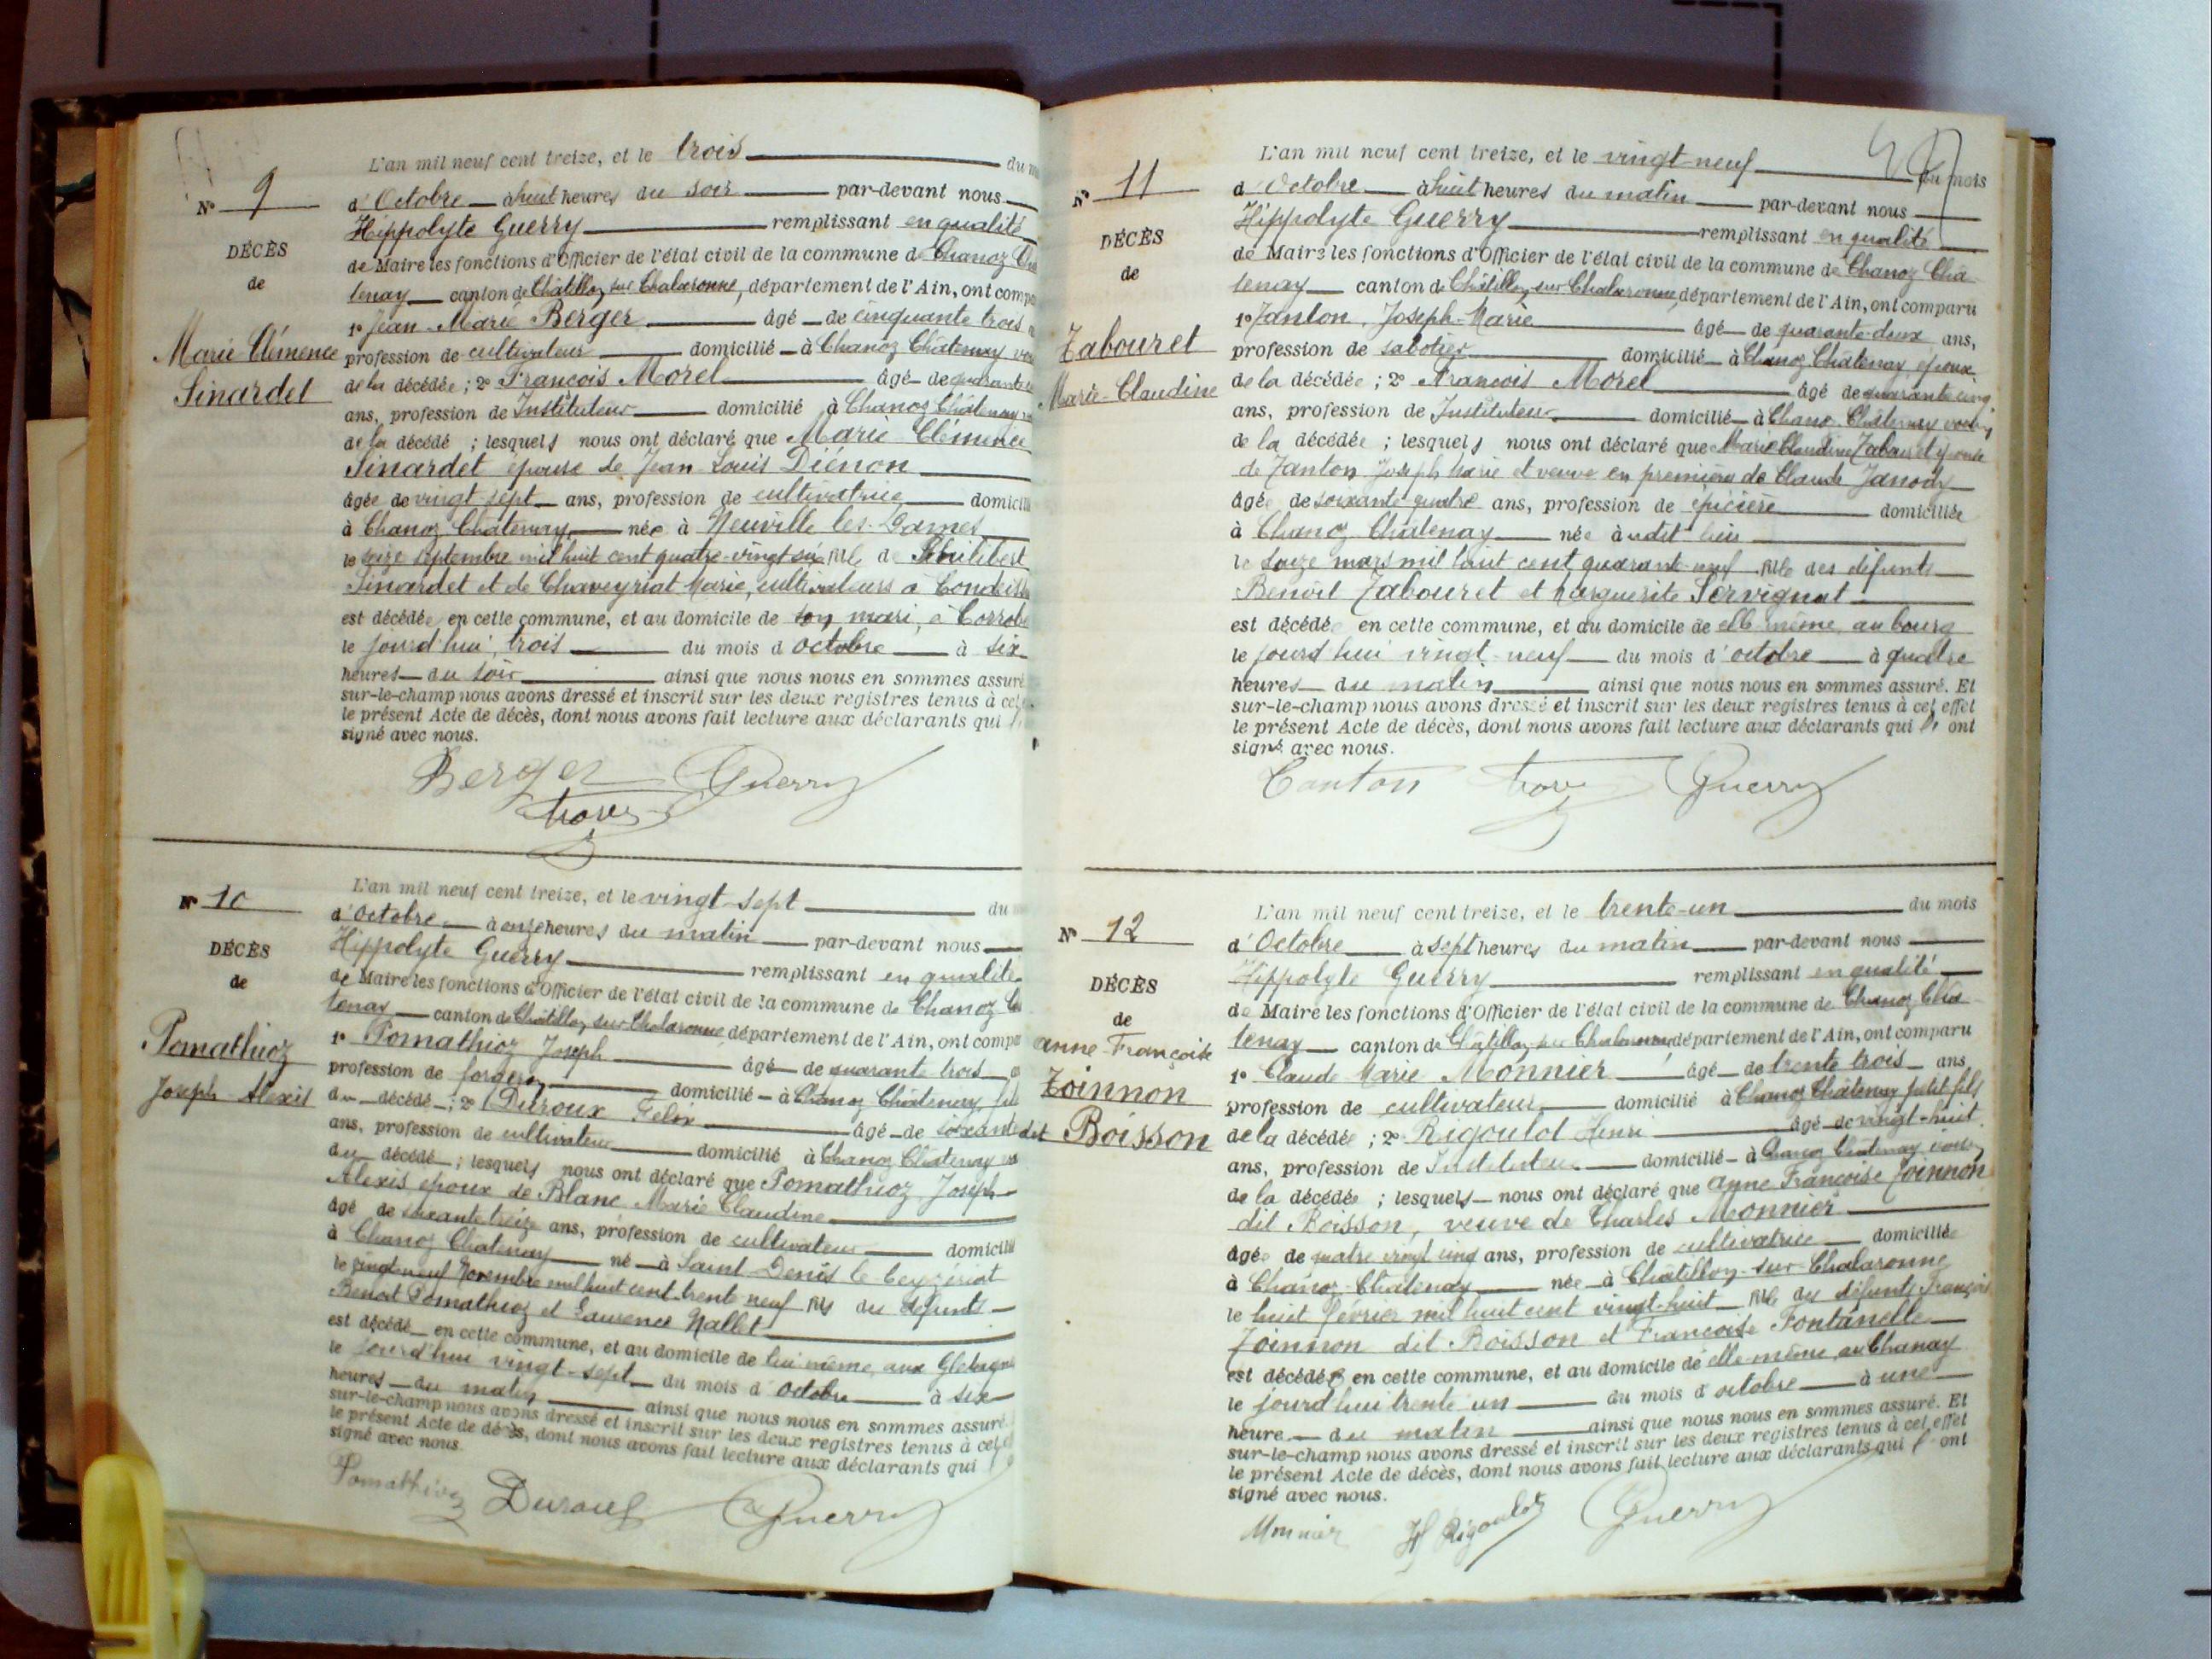 L'an mil neuf cent treize, et le trois du m
N° 9
d'Octobre à huit heures du soir par-devant nous
Hippolyte Guerry remplissant en qualité
DÉCÈS
de Maire les fonctions d'Officier de l'état civil de la commune de Chanoz Châ
de
tenay canton de Châtillon sur Chalaronne, département de l'Ain, ont compa
1° Jean-Marie Berger âgé de cinquante trois
Marie Clémence
profession de cultivateur domicilié à Chanoz Châtenay voi
Sinardet
de la décédée ; 2° François Morel âgé de quarante
ans, profession de Instituteur domicilié à Chanoz Châtenay
de la décédé ; lesquels nous ont déclaré que Marie Clémence
Sinardet épouse de Jean Louis Diénon
âgée de vingt sept ans, profession de cultivatrice domicili
à Chanoz Châtenay née à Neuville les Dames
le seize septembre mil huit cent quatre-vingt six fille de Philibert
Sinardet et de Chaveyriat Marie, cultivateurs à Condeiss
est décédée en cette commune, et au domicile de son mari, à
le jourd'hui trois du mois d'octobre à six
heures du soir ainsi que nous nous en sommes assuré
sur-le-champ nous avons dressé et inscrit sur les deux registres tenus à cet
le présent Acte de décès, dont nous avons fait lecture aux déclarants qui
signé avec nous.
Berger Guerry
L'an mil neuf cent treize, et le vingt-sept du
N° 10
d'Octobre à onze heures du matin par-devant nous
Hippolyte Guerry remplissant en qualité
DÉCÈS
de Maire les fonctions d'Officier de l'état civil de la commune de Chanoz
de
tenay canton de Châtillon sur Chalaronne, département de l'Ain, ont compa
Pomathioz
1° Pomathioz Joseph âgé de quarante trois
Joseph-Alexis
profession de forgeron domicilié à Chanoz Châtenay
du décédé ; 2° Duroux Felix âgé de soixante
ans, profession de cultivateur domicilié à Chanoz Châtenay
du décédé ; lesquels nous ont déclaré que Pomathioz Joseph
Alexis époux de Blanc Marie Claudine
âgé de soixante treize ans, profession de cultivateur domicili
à Chanoz Châtenay né à Saint Denis le Ceyzériat
le vingt neuf Novembre mil huit cent trente neuf fils des défunts
Benoit Pomathioz et Laurence Nallet
est décédé en cette commune, et au domicile de lui même, aux
le jourd'hui vingt-sept du mois d'octobre à six
heures du matin ainsi que nous nous en sommes assuré
sur-le-champ nous avons dressé et inscrit sur les deux registres tenus à cet
le présent Acte de décès, dont nous avons fait lecture aux déclarants qui
signé avec nous.
Pomathioz Duroux Guerry
L'an mil neuf cent treize, et le vingt-neuf du mois
N° 11
d'Octobre à huit heures du matin par-devant nous
Hippolyte Guerry remplissant en qualité
DÉCÈS
de Maire les fonctions d'Officier de l'état civil de la commune de Chanoz Châ
de
tenay canton de Châtillon sur Chalaronne, département de l'Ain, ont comparu
1° Janton Joseph-Marie âgé de quarante-deux ans,
Zabouret
profession de sabotier domicilié à Chanoz Châtenay époux
Marie-Claudine
de la décédée ; 2° François Morel âgé de quarante cinq
ans, profession de Instituteur domicilié à Chanoz Châtenay voisin
de la décédée ; lesquels nous ont déclaré que Marie Claudine Zabouret épouse
de Janton Joseph Marie et veuve en première de Claude Janody
âgée de soixante quatre ans, profession de épicière domiciliée
à Chanoz Châtenay née audit lieu
le seize mars mil huit cent quarante-neuf fille des défunts
Benoît Zabouret et Marguerite Servignat
est décédée en cette commune, et au domicile de elle même, au bourg
le jourd'hui vingt-neuf du mois d'octobre à quatre
heures du matin ainsi que nous nous en sommes assuré. Et
sur-le-champ nous avons dressé et inscrit sur les deux registres tenus à cet effet
le présent Acte de décès, dont nous avons fait lecture aux déclarants qui ont
signé avec nous.
Guerry
L'an mil neuf cent treize, et le trente-un du mois
N° 12
d'Octobre à sept heures du matin par-devant nous
Hippolyte Guerry remplissant en qualité
DÉCÈS
de Maire les fonctions d'Officier de l'état civil de la commune de Chanoz Châ
de
tenay canton de Châtillon sur Chalaronne département de l'Ain, ont comparu
Anne-Françoise
1° Claude Marie Monnier âgé de trente trois ans,
Zoinnon
profession de cultivateur domicilié à Chanoz Châtenay petit fils
dit Boisson
de la décédée ; 2° Rigoulot Henri âgé de vingt-huit
ans, profession de Instituteur domicilié à Chanoz Châtenay voisin
de la décédée ; lesquels nous ont déclaré que Anne Françoise Zoinnon
dit Boisson, veuve de Charles Monnier
âgée de quatre vingt cinq ans, profession de cultivatrice domiciliée
à Chanoz-Châtenay née à Châtillon-sur-Chalaronne
le huit février mil huit cent vingt-huit fille des défunts François
Zoinnon dit Boisson et Françoise Fontanelle
est décédée en cette commune, et au domicile de elle-même, au Chanay
le jourd'hui trente un du mois d'octobre à une
heure du matin ainsi que nous nous en sommes assuré. Et
sur-le-champ nous avons dressé et inscrit sur les deux registres tenus à cet effet
le présent Acte de décès, dont nous avons fait lecture aux déclarants qui l'ont
signé avec nous.
Monnier H Rigoulot Guerry